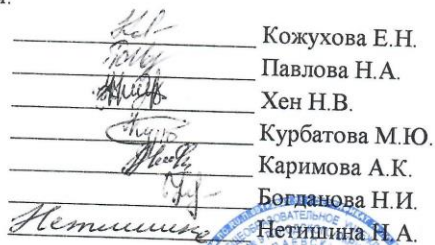 Кожухова Е.Н.
Павлова Н.А.
Хен Н.В.
Курбатова М.Ю.
Каримова А.К.
Богданова Н.И.
Нетишина Н.А.